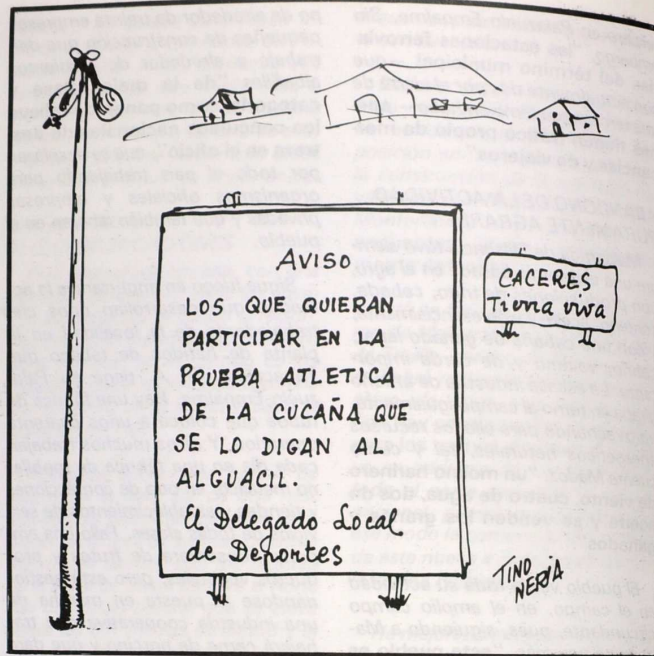 AVISO
LOS QUE QUIERAN
PARTICIPAR EN LA
PRUEBA ATLETICA
DE LA CUCAÑA QUE
SE LO DIGAN AL
ALGUACIL.
El Delegado Local
de Deportes
CACERES
Tierra viva
TINO
NERJA